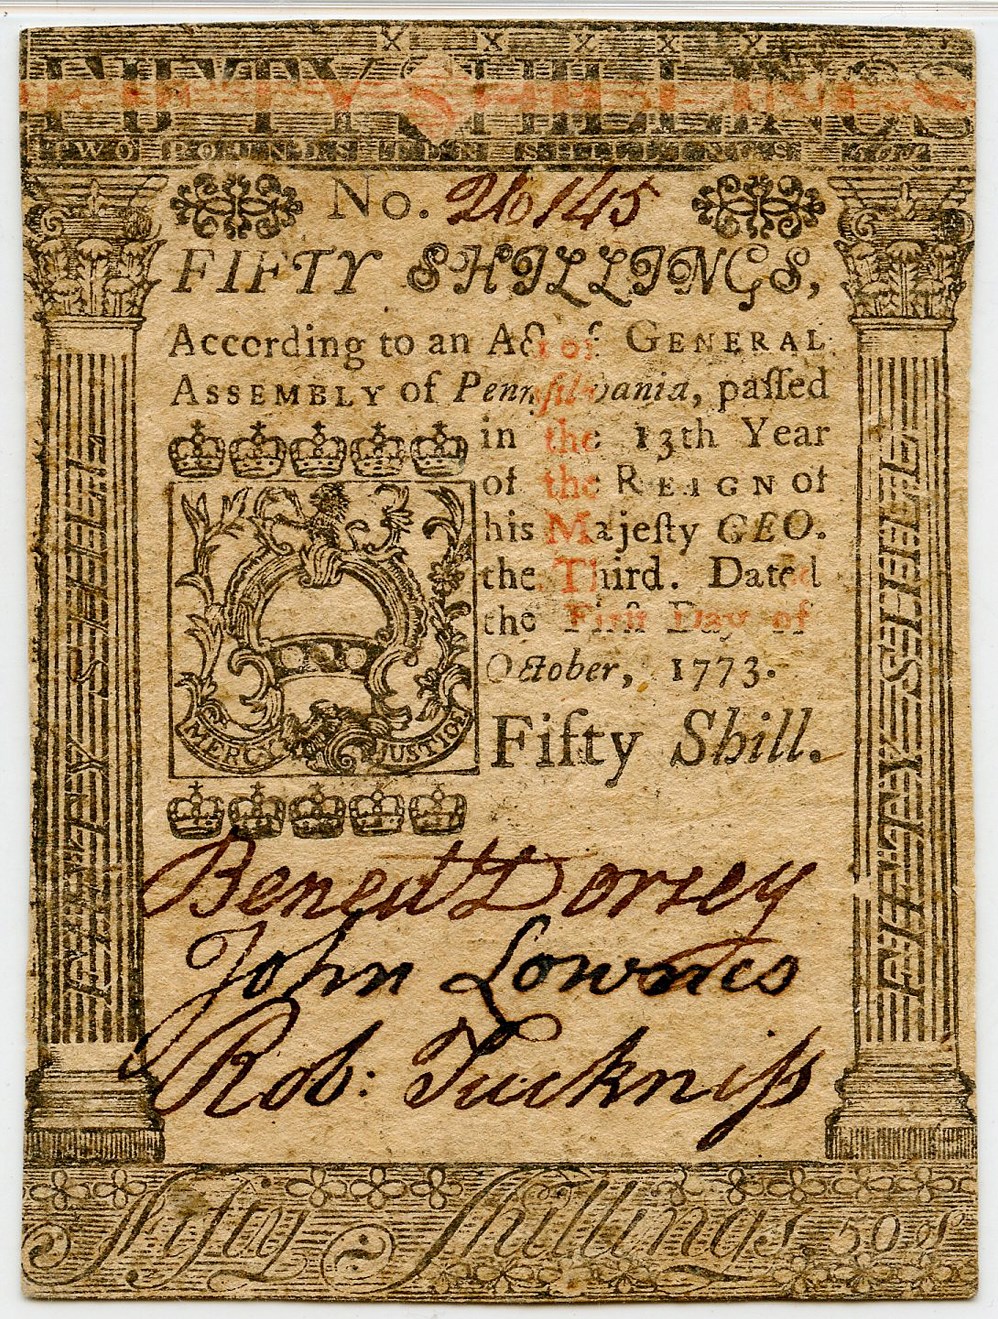 X X X X X
FIFTY SHILLINGS
TWO POUNDS TEN SHILLINGS
No. 26145
FIFTY SHILLINGS,
According to an Act of GENERAL
ASSEMBLY of Pennſilvania, paſſed
in the 13th Year
of the REIGN of
his Majeſty GEO.
the Third. Dated
the Firſt Day of
October, 1773.
Fifty Shill.
MERCY JUSTICE
Bened't Dorsey
John Lownes
Rob: Tuckniſs
FIFTY SHILL
FIFTY SHILL
Fifty Shillings 50 s